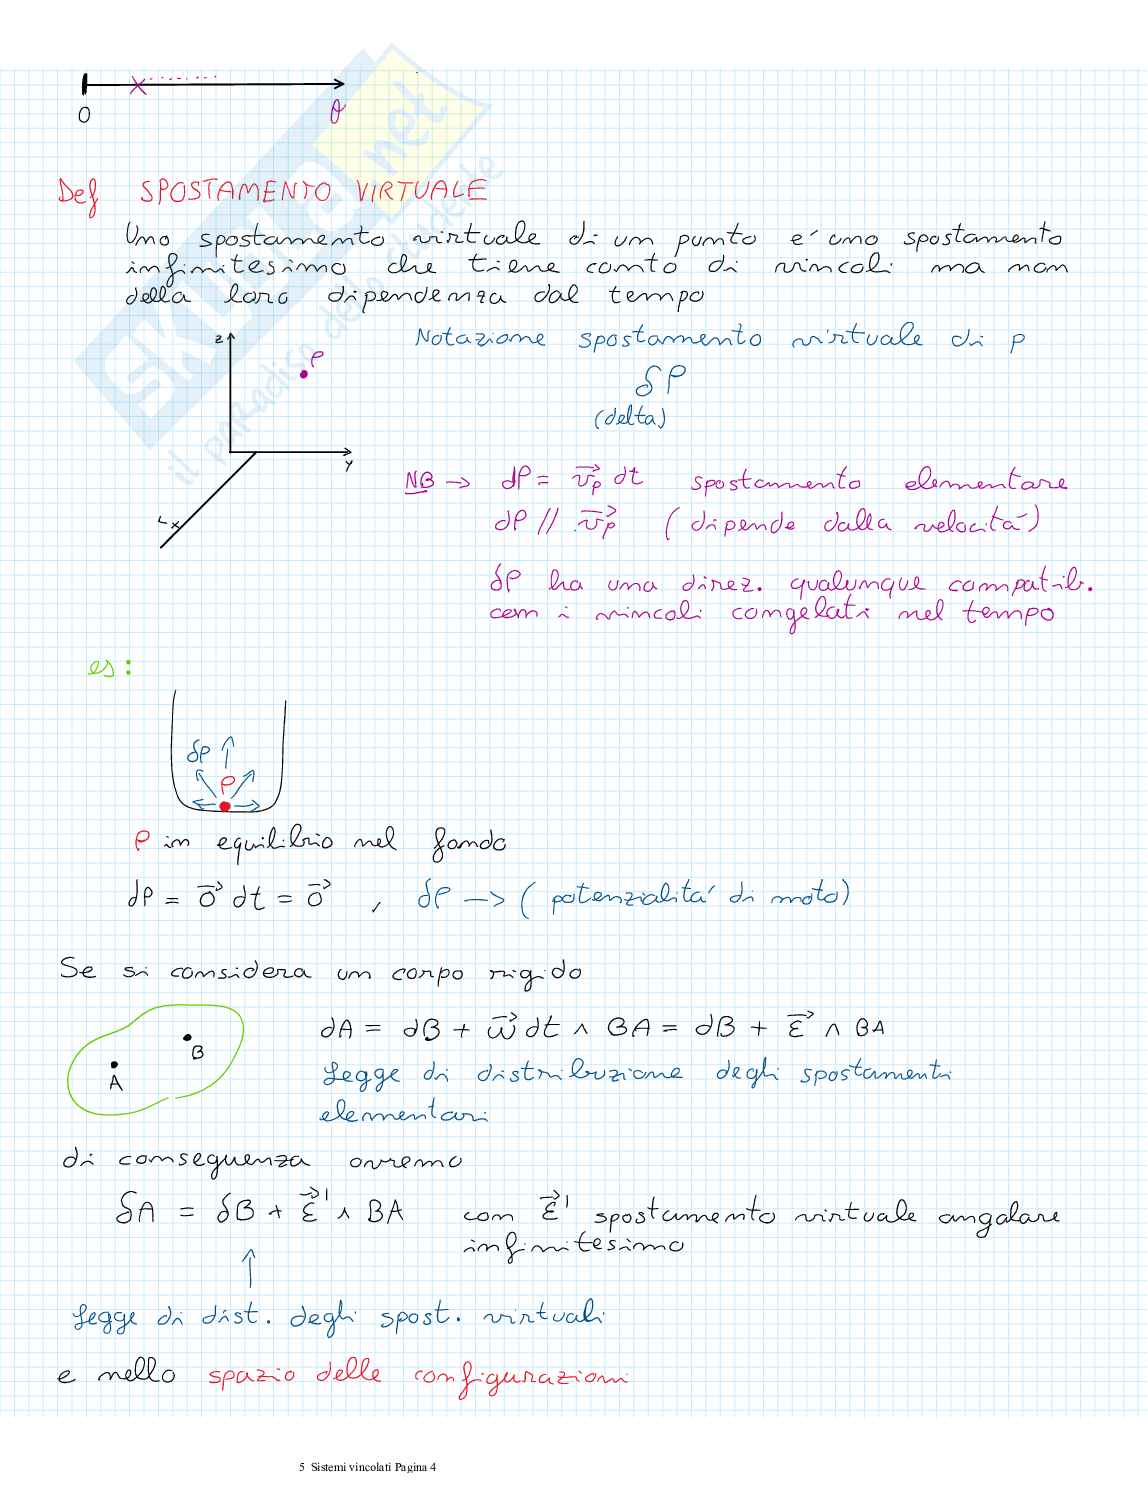 O θ
SKUOLA.net
il paradiso dello
Def SPOSTAMENTO VIRTUALE
Uno spostamento virtuale di un punto e' uno spostamento
infinitesimo che tiene conto di vincoli ma non
della loro dipendenza dal tempo
z
P
y
x
Notazione spostamento virtuale di P
δP
(delta)
NB → dP = v⃗p dt spostamento elementare
dP // v⃗p (dipende dalla velocitá)
δP ha una direz. qualunque compatib.
con i vincoli congelati nel tempo
es:
δP
P
P in equilibrio nel fondo
dP = 0⃗ dt = 0⃗ , δP —> (potenzialitá di moto)
Se si considera un corpo rigido
A B
dA = dB + ω⃗ dt ∧ BA = dB + ε⃗ ∧ BA
Legge di distribuzione degli spostamenti
elementari
di conseguenza avremo
δA = δB + ε⃗' ∧ BA con ε⃗' spostamento virtuale angolare
infinitesimo
↑
Legge di dist. degli spost. virtuali
e nello spazio delle configurazioni
5 Sistemi vincolati Pagina 4